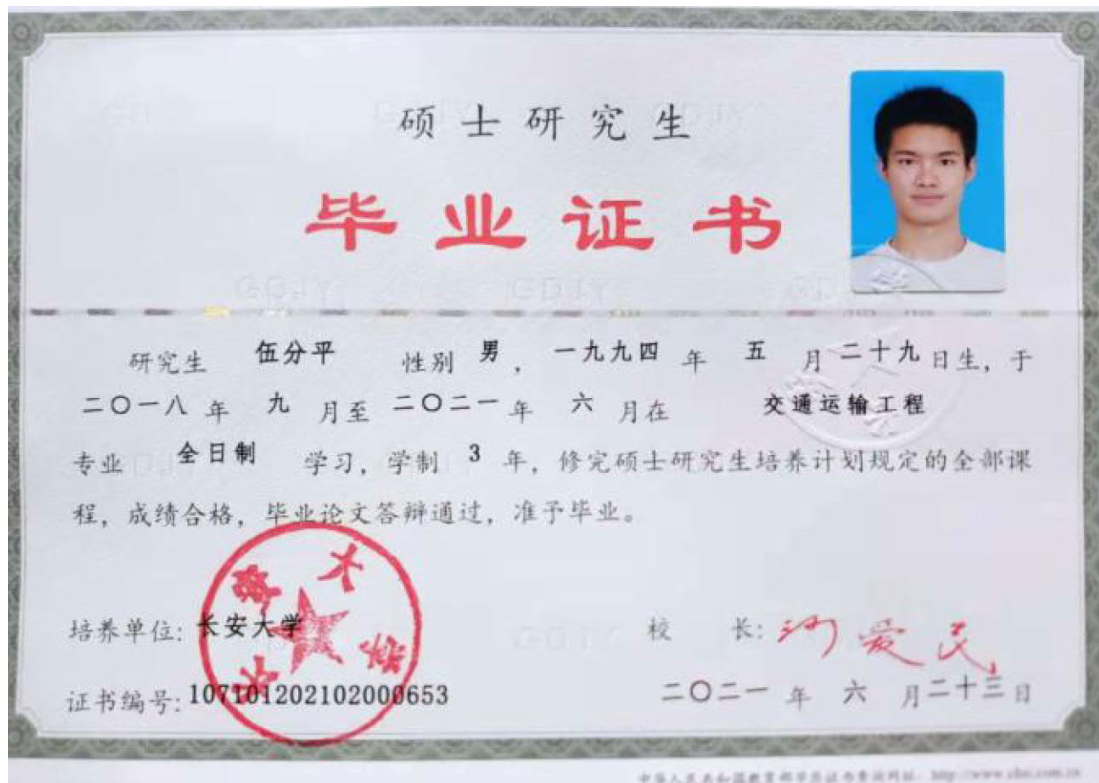 硕士研究生
毕业证书
研究生 伍分平 性别 男 ， 一九九四 年 五 月 二十九 日生，于
二〇一八 年 九 月至 二〇二一 年 六 月在 交通运输工程
专业 全日制 学习，学制 3 年，修完硕士研究生培养计划规定的全部课
程，成绩合格，毕业论文答辩通过，准予毕业。
培养单位: 长安大学
校 长: 沙爱民
证书编号: 107101202102000653
二〇二一 年 六 月 二十三 日
长安大学
中华人民共和国教育部学历证书查询网址: http://www.chsi.com.cn